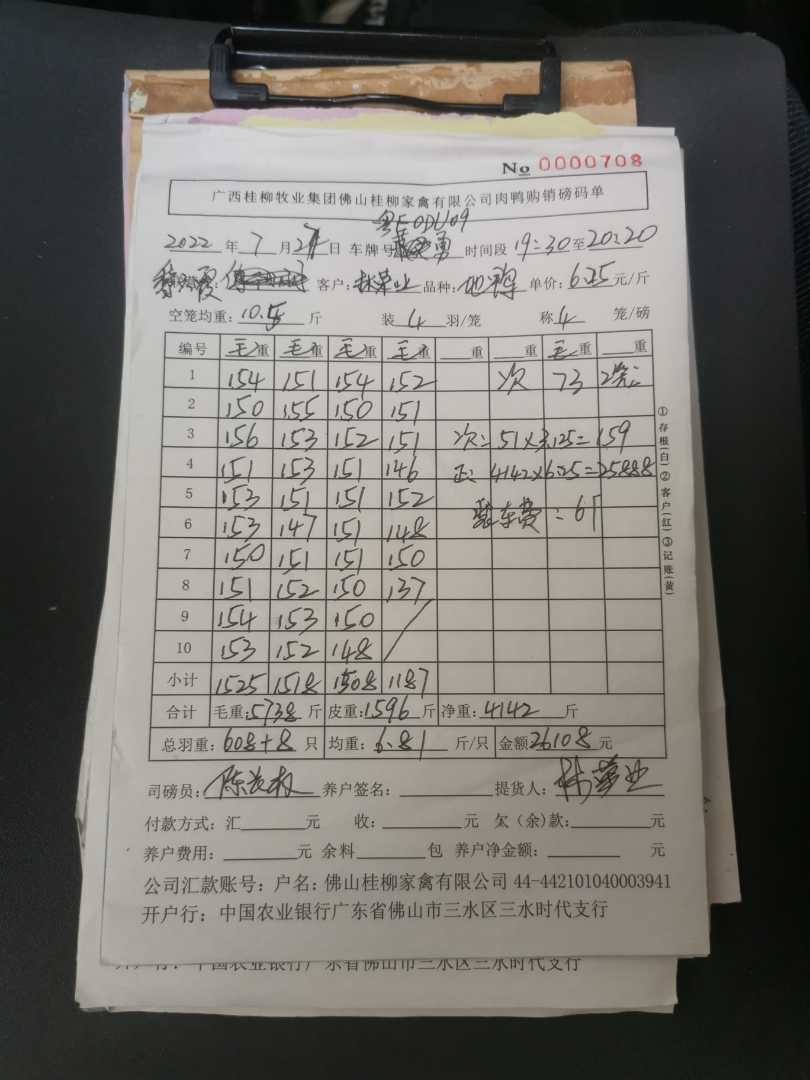 No 0000708
广西桂柳牧业集团佛山桂柳家禽有限公司肉鸭购销磅码单
粤E0DU09
2022年7月27日 车牌号 勇 时间段 19:30至20:20
霞: 客户: 林业 品种: 单价:6.25元/斤
空笼均重:10.5斤 装4羽/笼 称4笼/磅
编号 毛重 毛重 毛重 毛重 重 重 毛重 重
1 154 151 154 152 次 73 2笼
2 150 155 150 151
3 156 153 152 151 次: 51×3.125=159
4 151 153 151 146 正: 4142×6.25=25888
5 153 151 151 152
6 153 147 151 148 装车费:61
7 150 151 151 150
8 151 152 150 137
9 154 153 150
10 153 152 148
小计 1525 1518 1508 1187
合计 毛重:5738斤 皮重:1596斤 净重:4142斤
总羽重:608+8只 均重:6.81斤/只 金额26108元
司磅员: 陈 养户签名: 提货人: 林业
付款方式:汇 元 收: 元 欠(余)款: 元
养户费用: 元 余料 包 养户净金额: 元
公司汇款账号:户名:佛山桂柳家禽有限公司 44-442101040003941
开户行:中国农业银行广东省佛山市三水区三水时代支行
①存根(白)②客户(红)③记账(黄)
开户行:中国农业银行广东省佛山市三水区三水时代支行